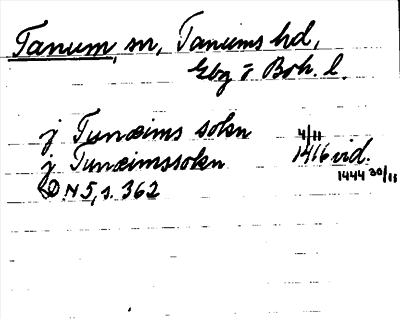 Tanum, sn, Tanums hd,
Gbg o Boh. l.
j Tunæims sokn 4/11
j Tunæimssokn 1416 vid.
D.N 5, s. 362 1444 30/11